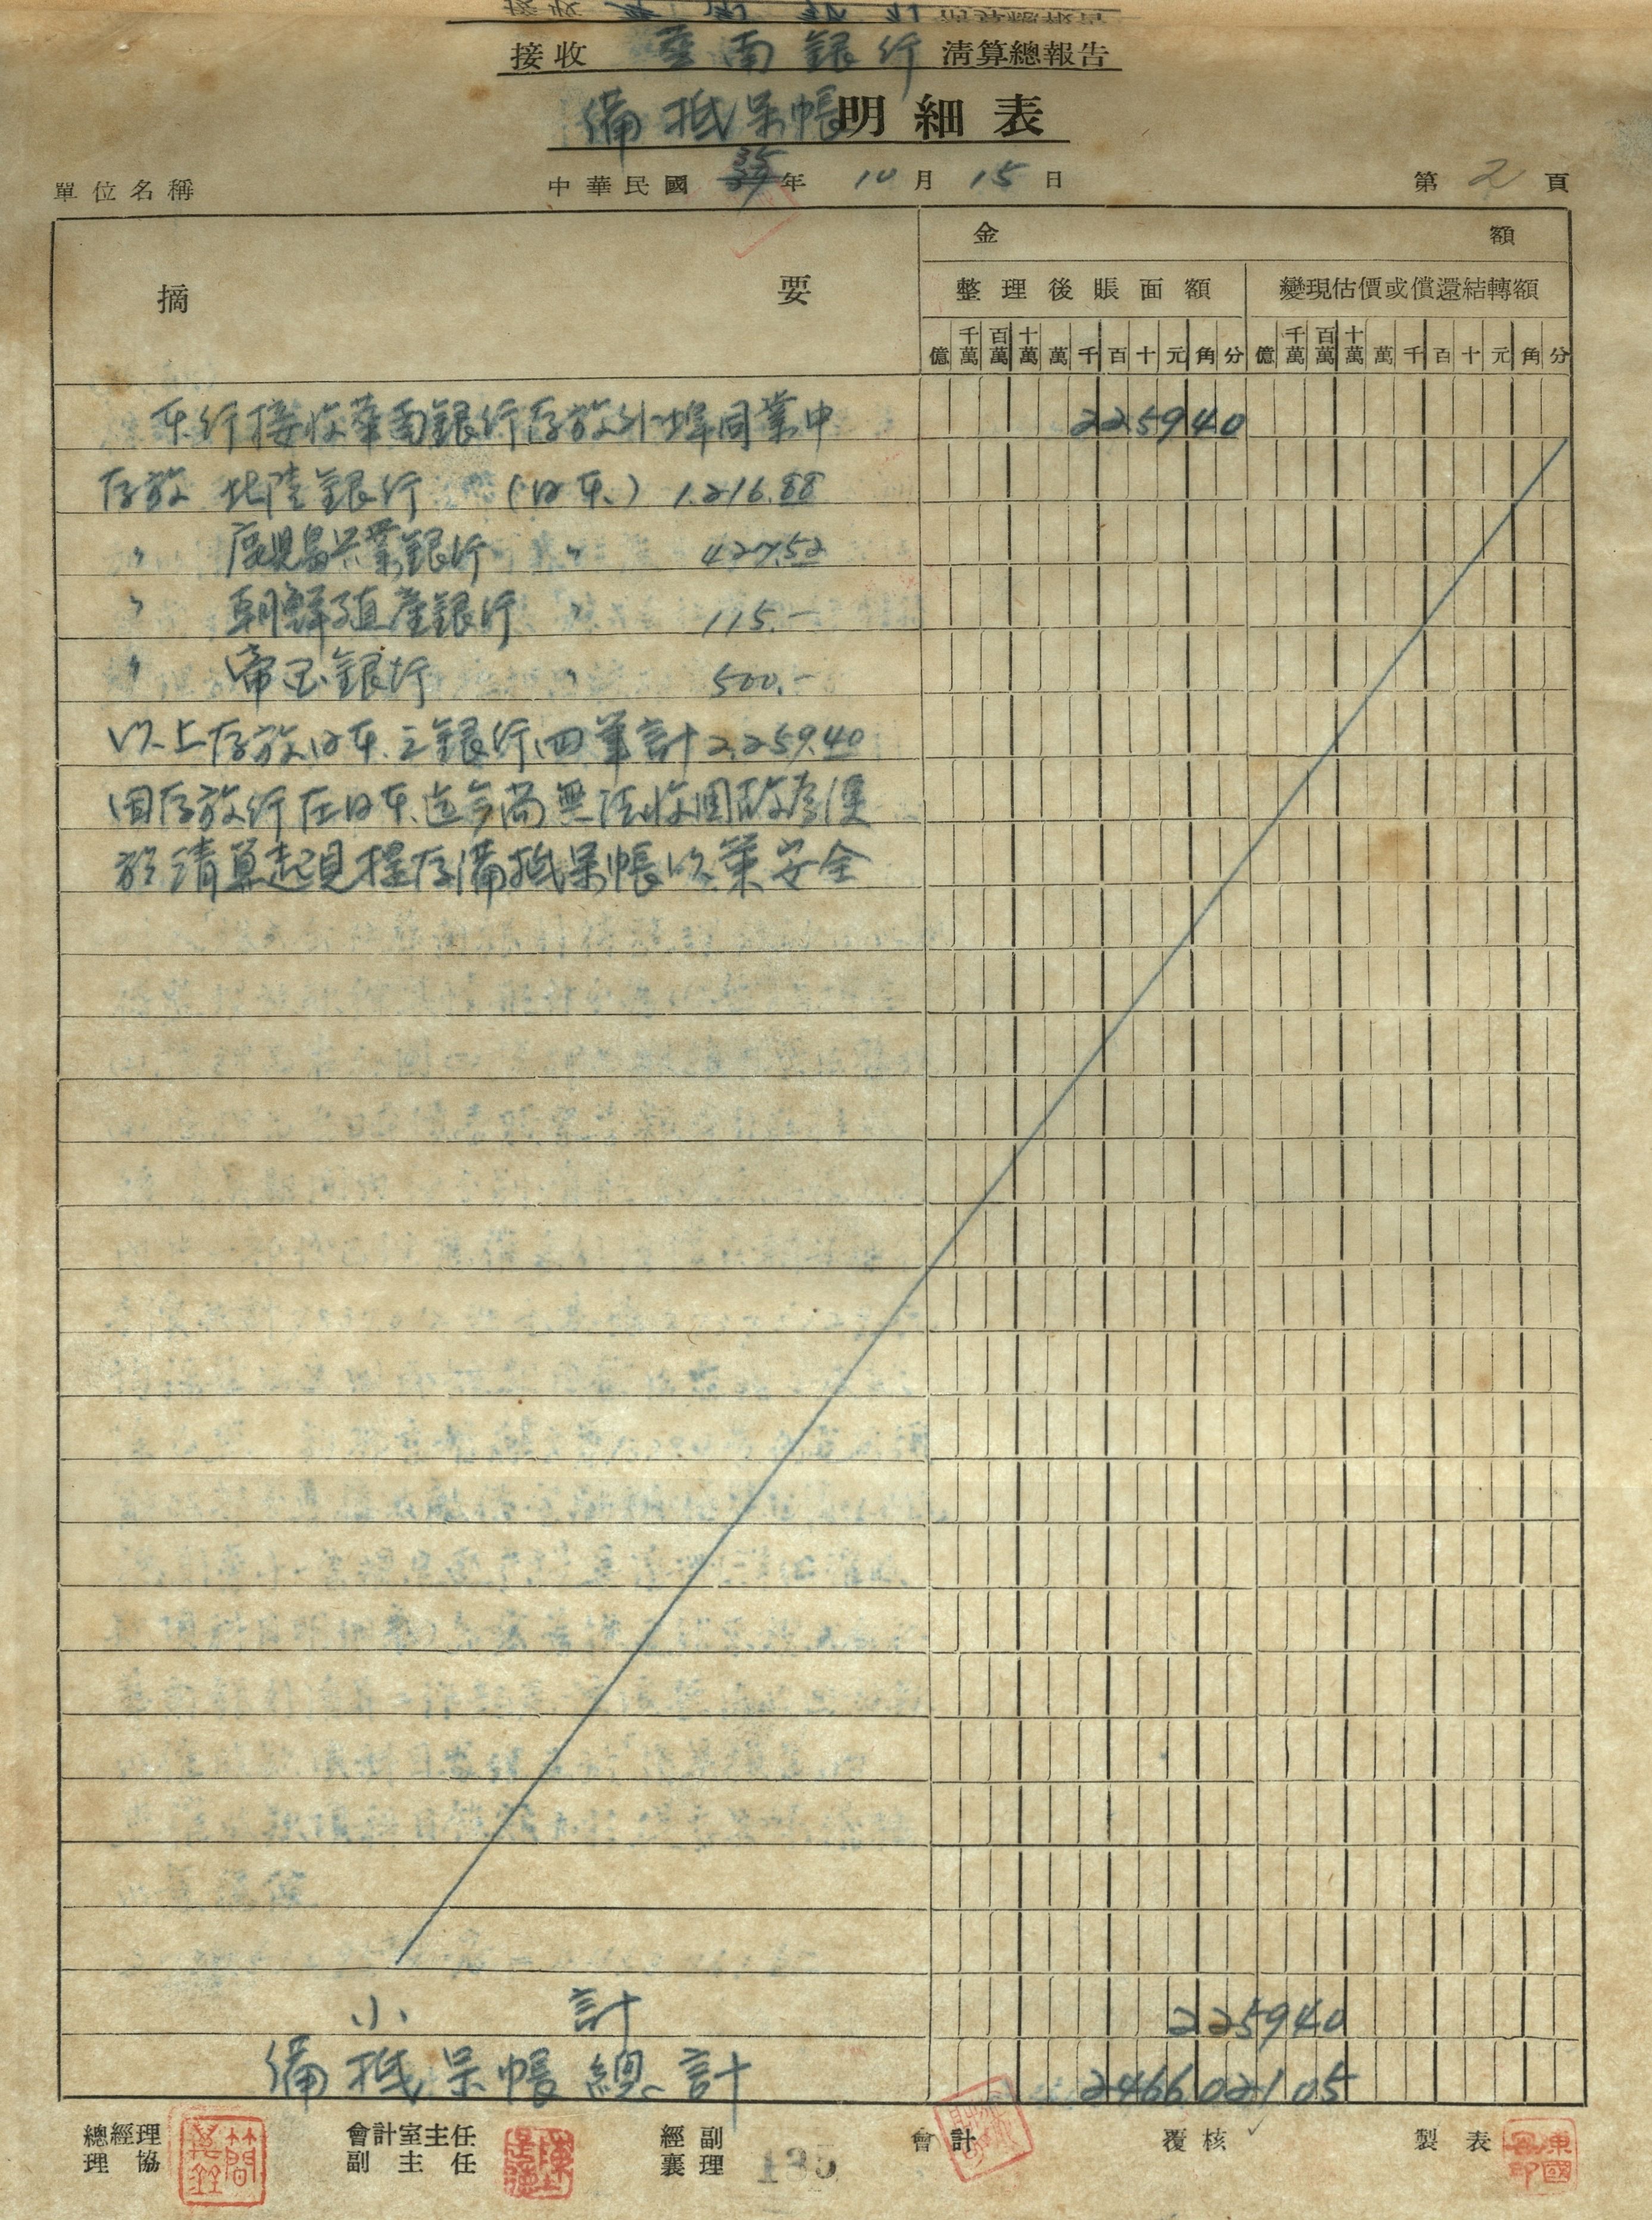 接收 華南銀行 清算總報告
備抵呆帳明細表
單位名稱 中華民國 35 年 10 月 15 日 第 2 頁
摘要 金額
整理後賬面額 變現估價或償還結轉額
億 千萬 百萬 十萬 萬 千 百 十 元 角 分 億 千萬 百萬 十萬 萬 千 百 十 元 角 分
本行接收華南銀行存放外埠同業中 225940
存放 北陸銀行 (日本) 1,216.88
〃 鹿児島興業銀行 〃 427.52
〃 朝鮮殖産銀行 〃 115.—
〃 帝国銀行 〃 500.—
以上存放日本之銀行四筆計2,259.40
因存放行在日本迄今尚無法收回故為便
於清算起見提存備抵呆帳以策安全
小計 225940
備抵呆帳總計 246602105
總經理 會計室主任 經副 會計 覆核 製表
理協 副主任 襄理 135